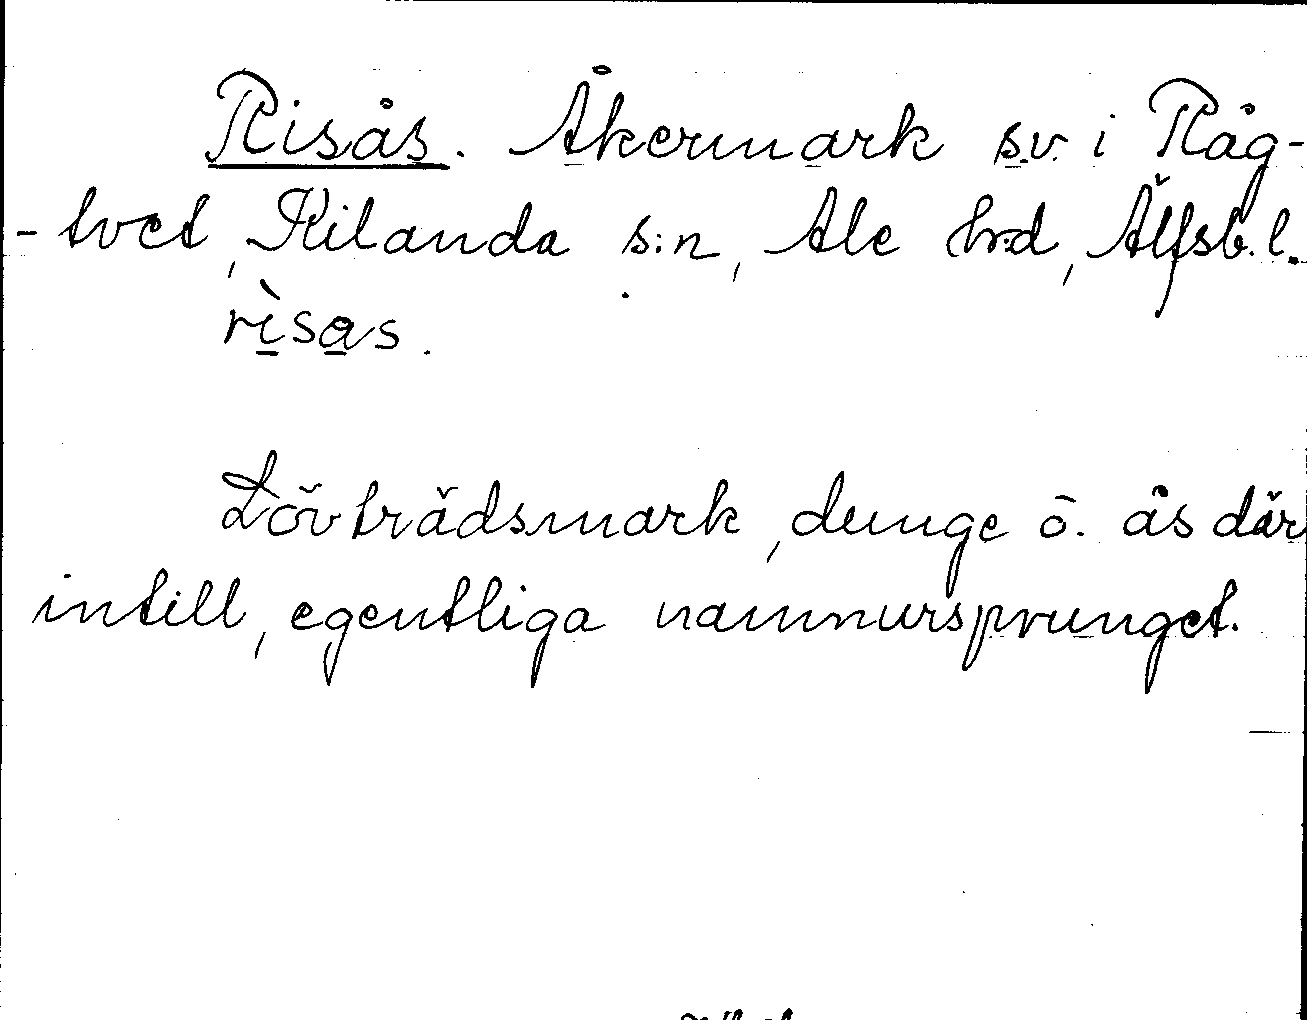 Risås. Åkermark s.v. i Råg-
-tvet, Kilanda s:n, Ale hrd, Älfsb. l.
rìsas.
Lövträdsmark, dunge ö. ås där
intill, egentliga namnursprunget.